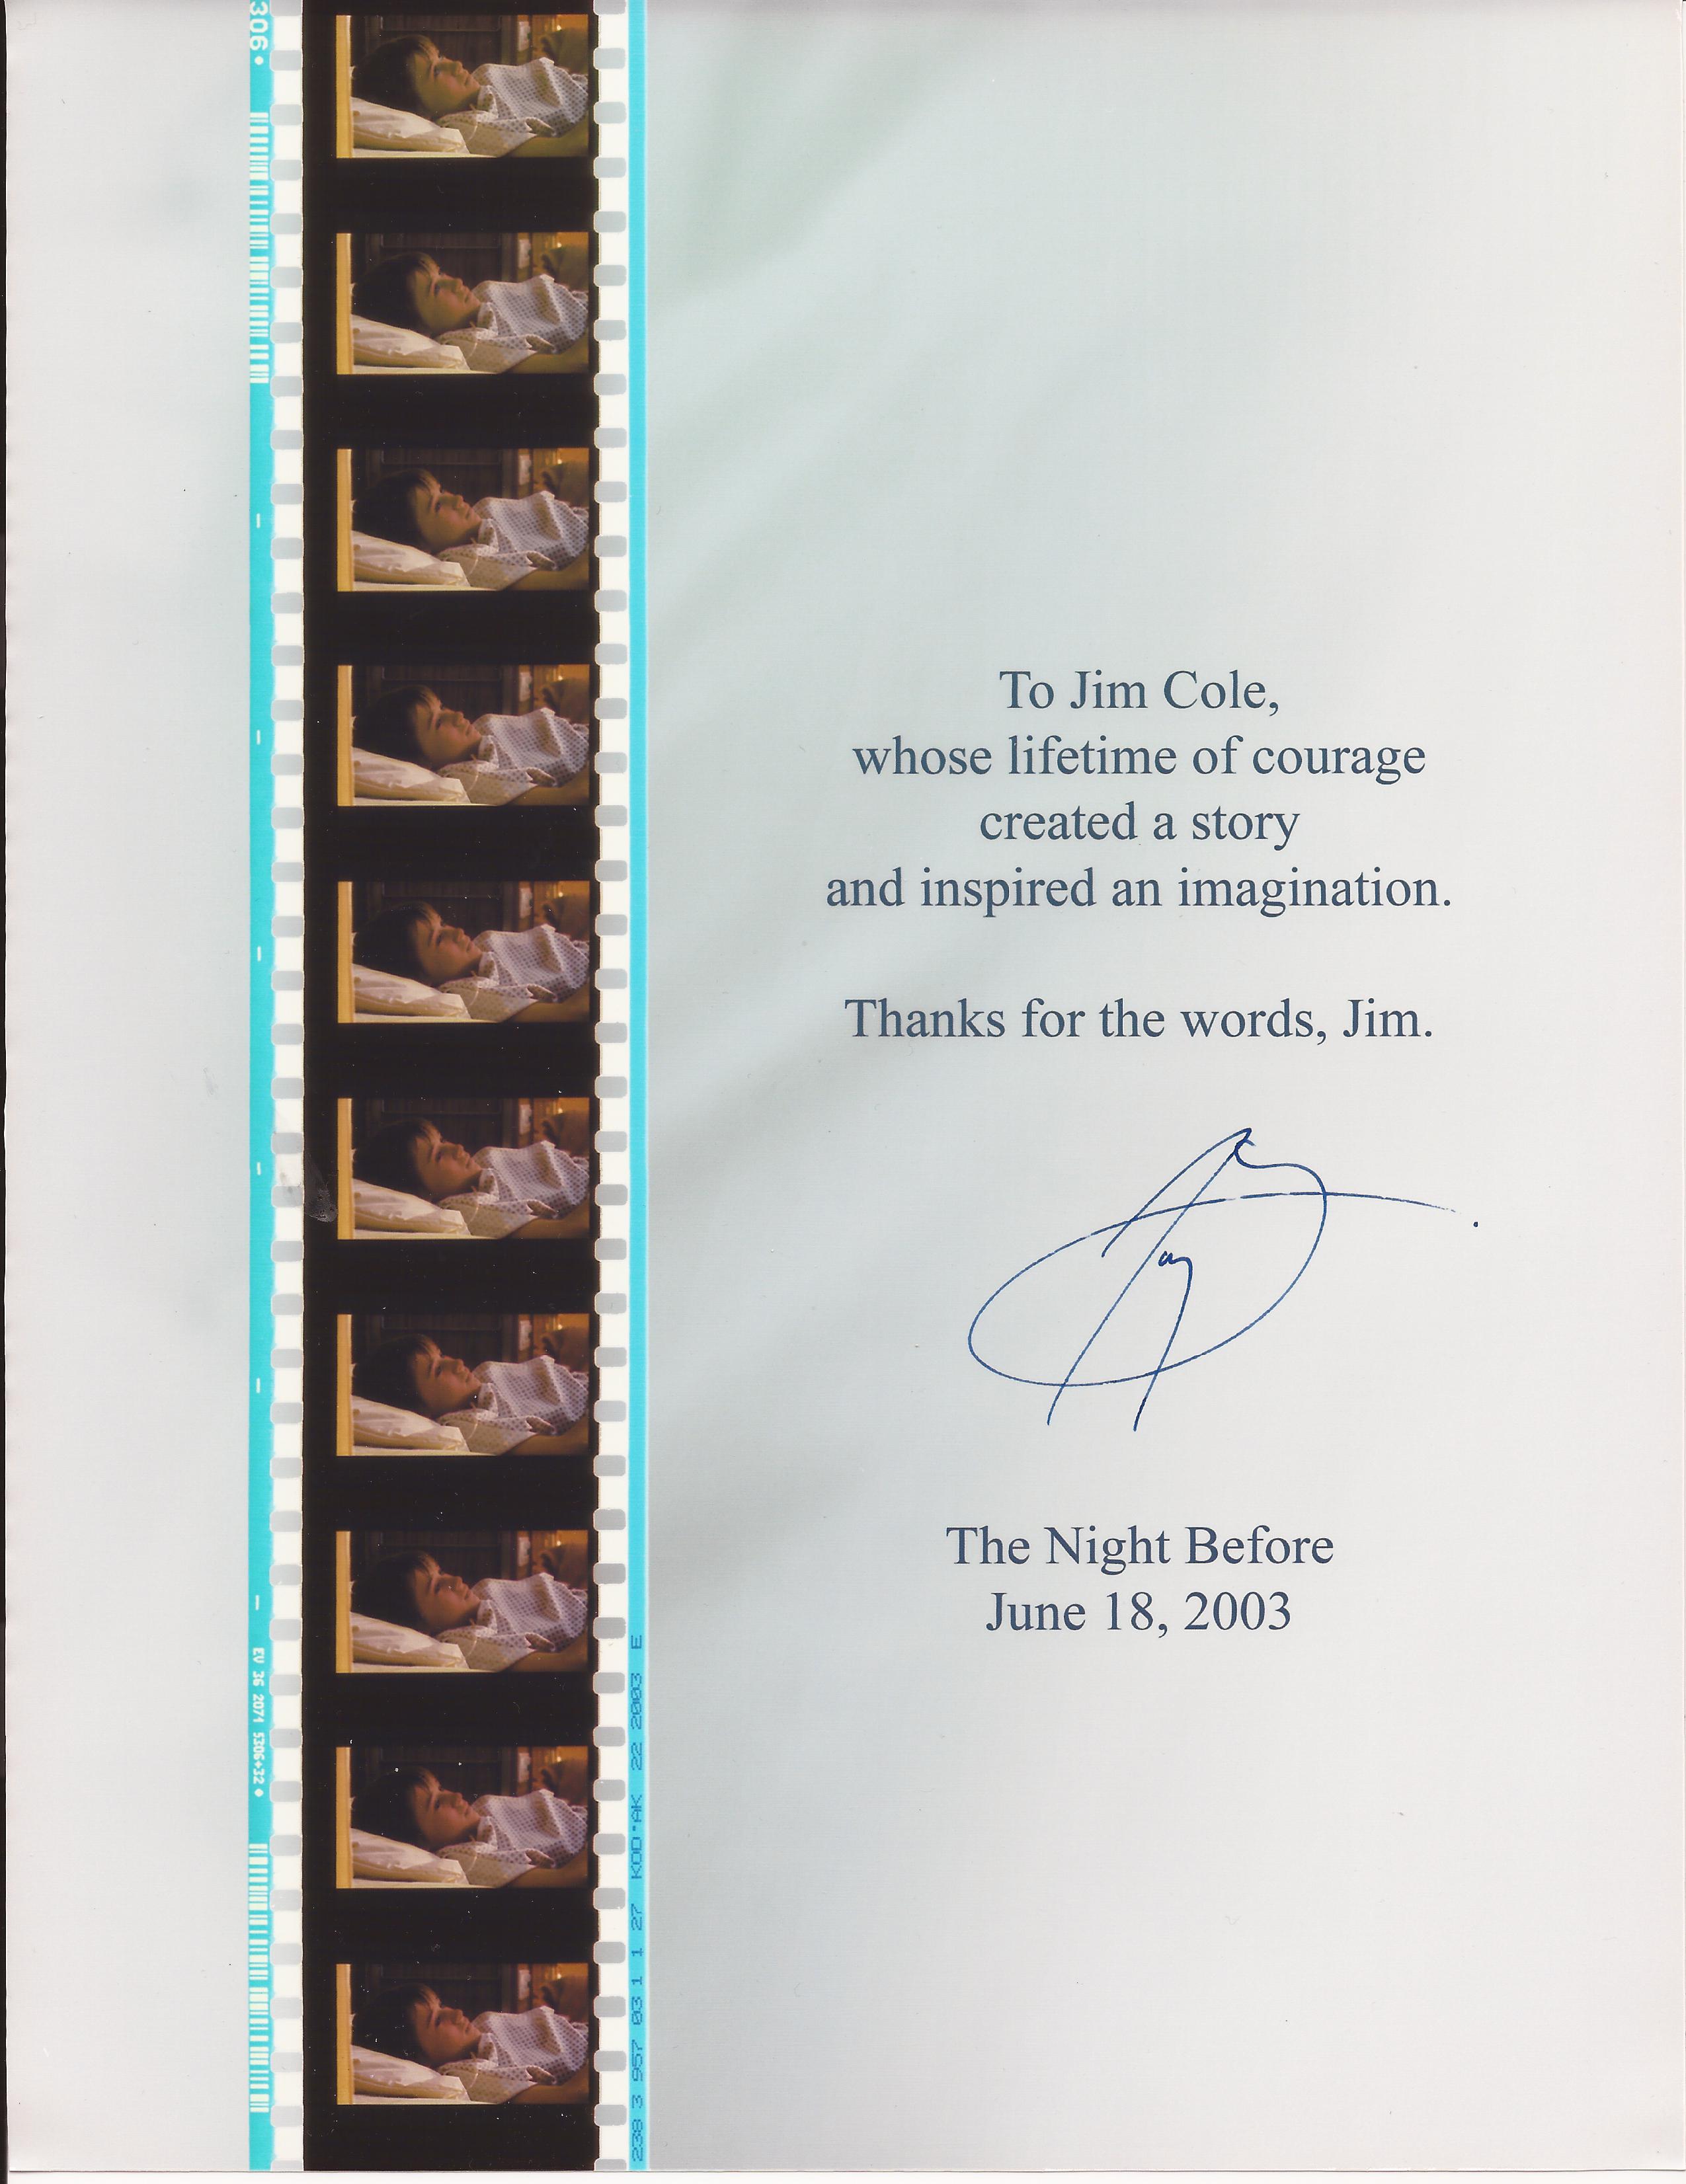 306
To Jim Cole,
whose lifetime of courage
created a story
and inspired an imagination.
Thanks for the words, Jim.
The Night Before
June 18, 2003
EV 36 2071 5306+32
238 3 957 03 1 1 27 KOD·AK 22 2003 E